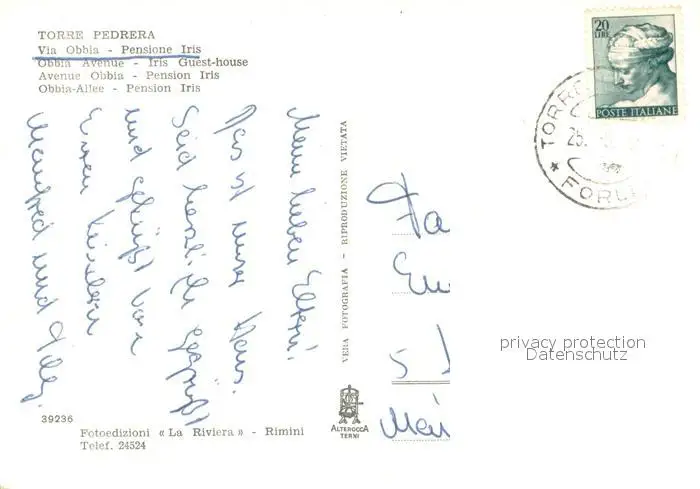 TORRE PEDRERA
Via Obbia - Pensione Iris
Obbia Avenue - Iris Guest-house
Avenue Obbia - Pension Iris
Obbia-Allee - Pension Iris
Meine lieben Eltern!
Das ist unser Haus.
Seid herzlich gegrüßt
und geküßt von
Euren Kindern
Manfred und
VERA FOTOGRAFIA - RIPRODUZIONE VIETATA
20
LIRE
POSTE ITALIANE
TORRE
25.
FORLI
Fa
5
privacy protection
Datenschutz
39236
Fotoedizioni « La Riviera » - Rimini
Telef. 24524
ALTEROCCA
TERNI